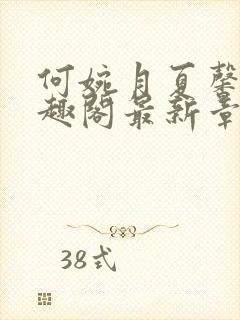 何婉月夏馨
趣阁最新章
38式